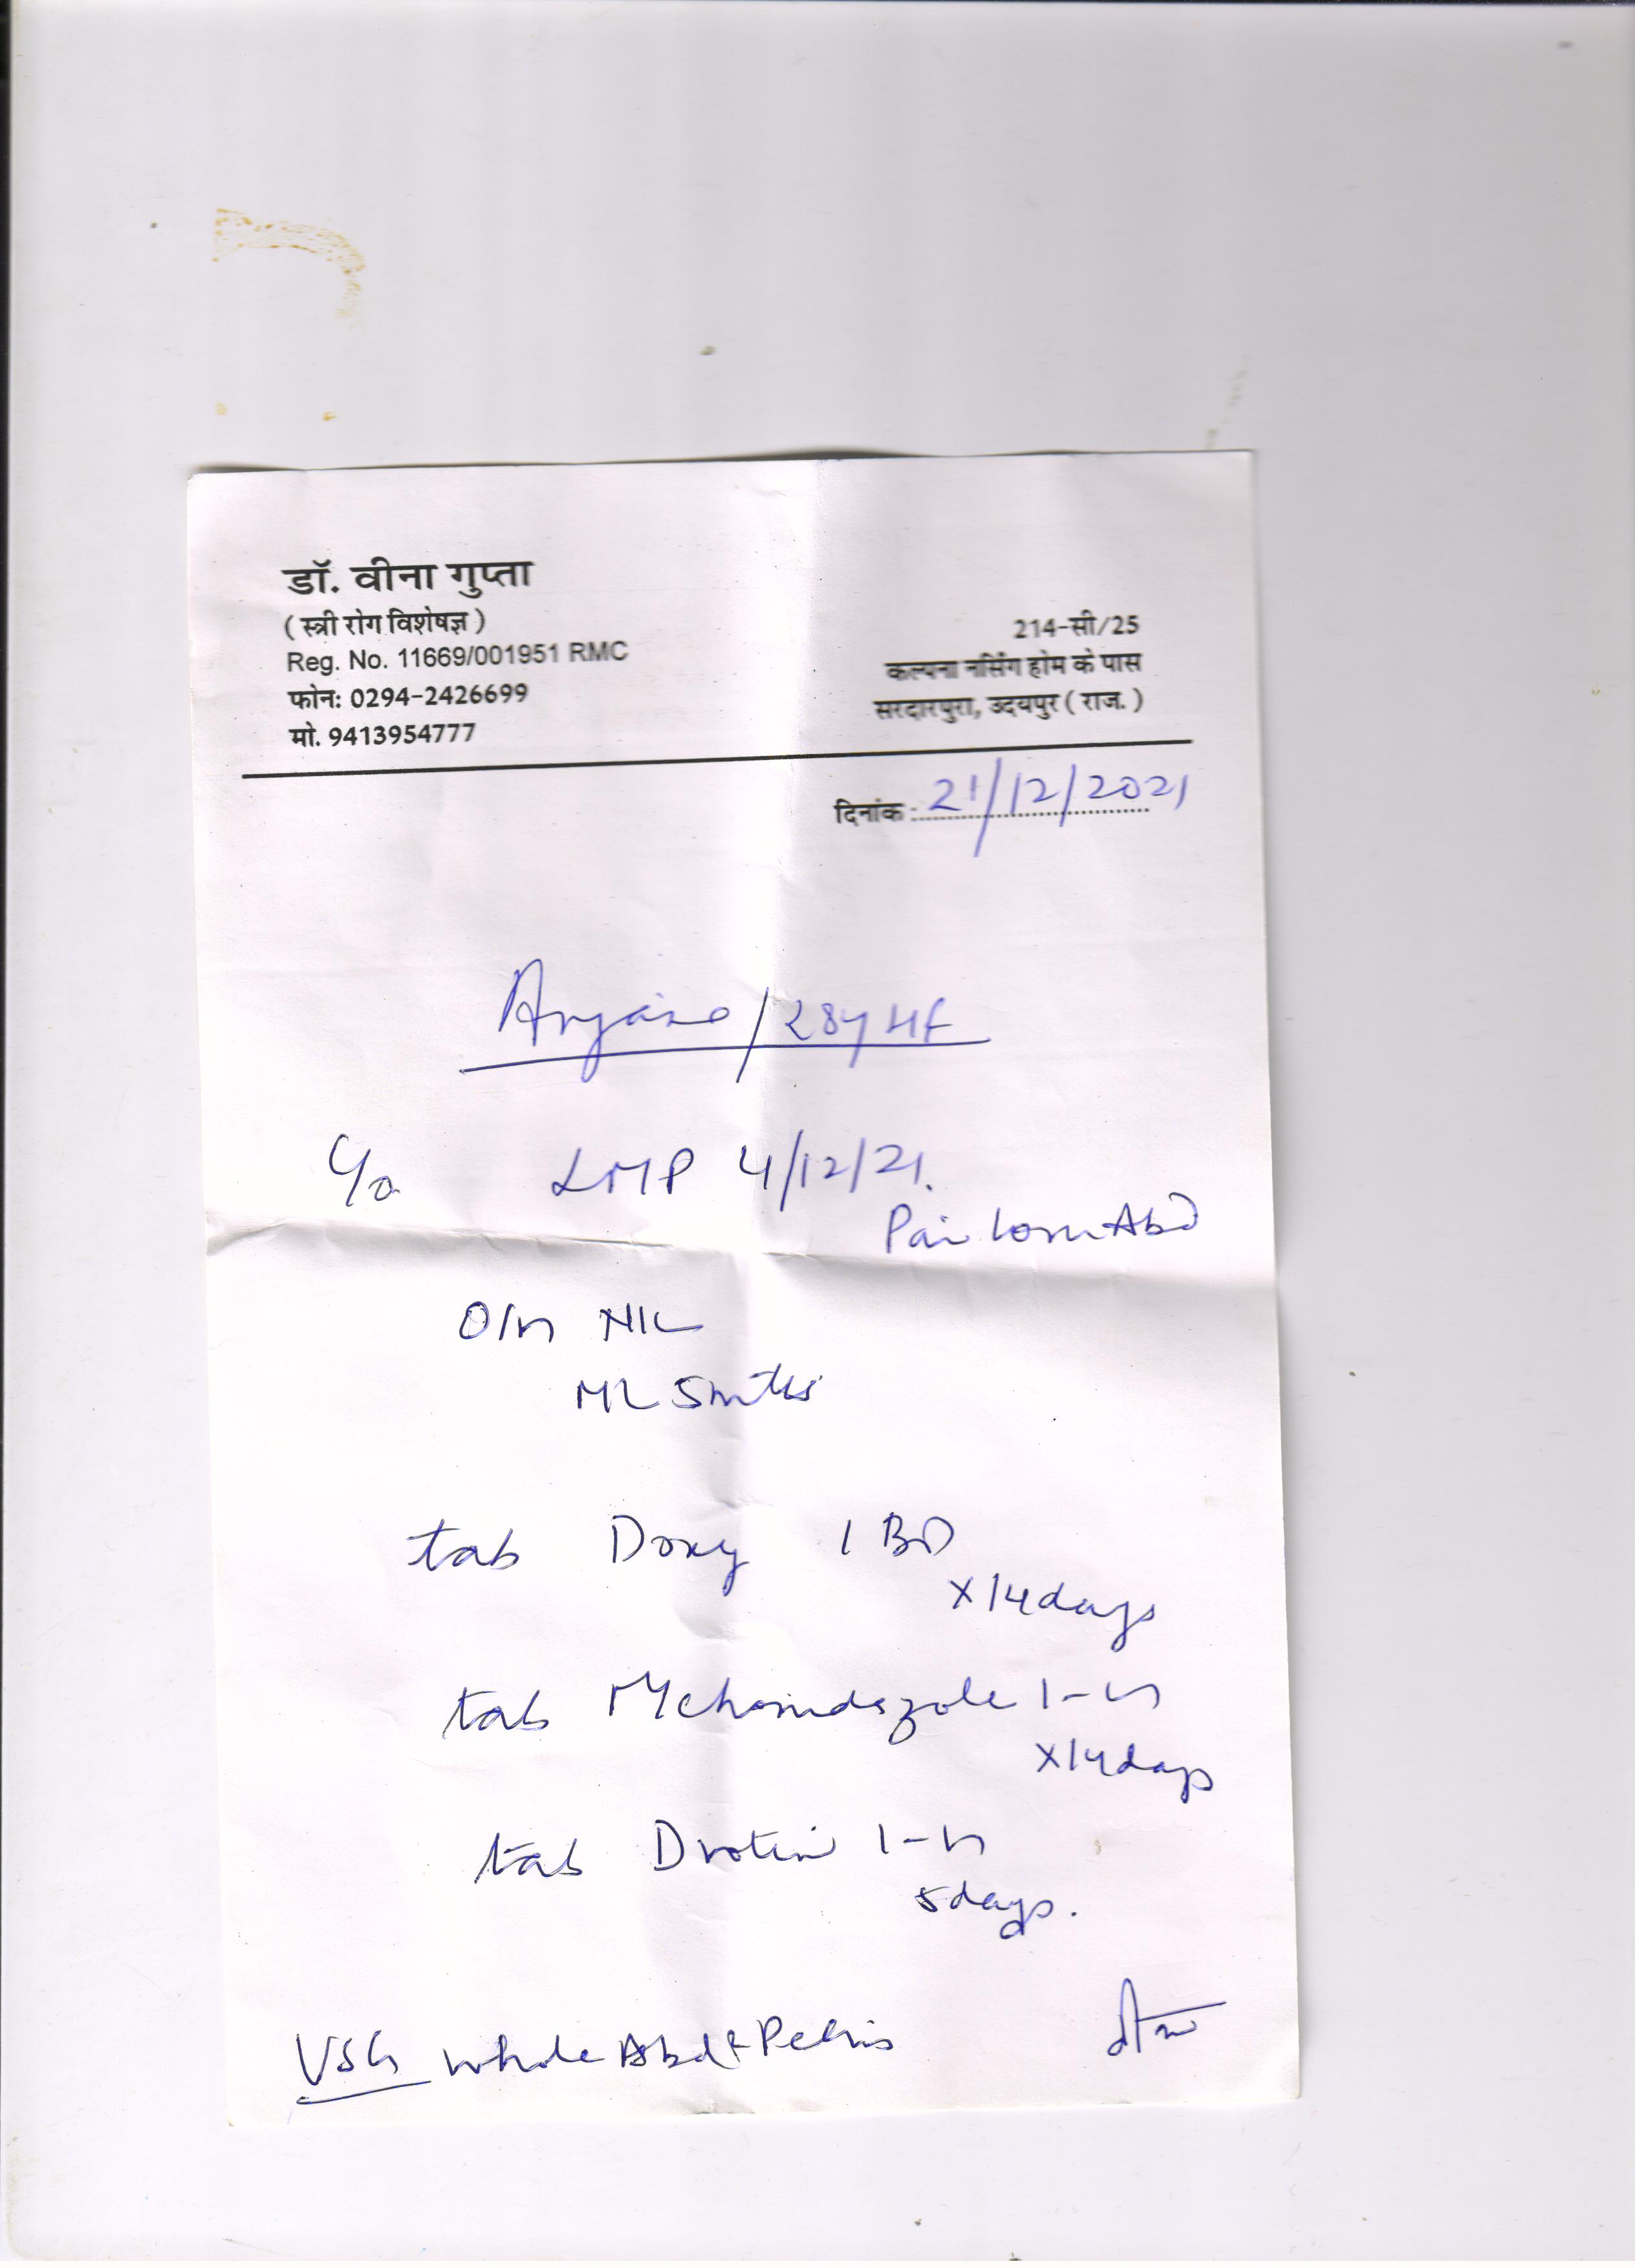 डॉ. वीना गुप्ता
( स्त्री रोग विशेषज्ञ )
Reg. No. 11669/001951 RMC
फोनः 0294-2426699
मो. 9413954777
214-सी/25
कल्पना नर्सिंग होम के पास
सरदारपुरा, उदयपुर ( राज. )
दिनांक : 21/12/2021
/ 28y HF
C/o LMP 4/12/21.
Pain lower Abd
O/H NIL
ML 5mths
tab Doxy 1 BD
x14days
tab Metronidazole 1-
x14days
tab Drotin 1-
5days.
USG whole Abd & Pelvis